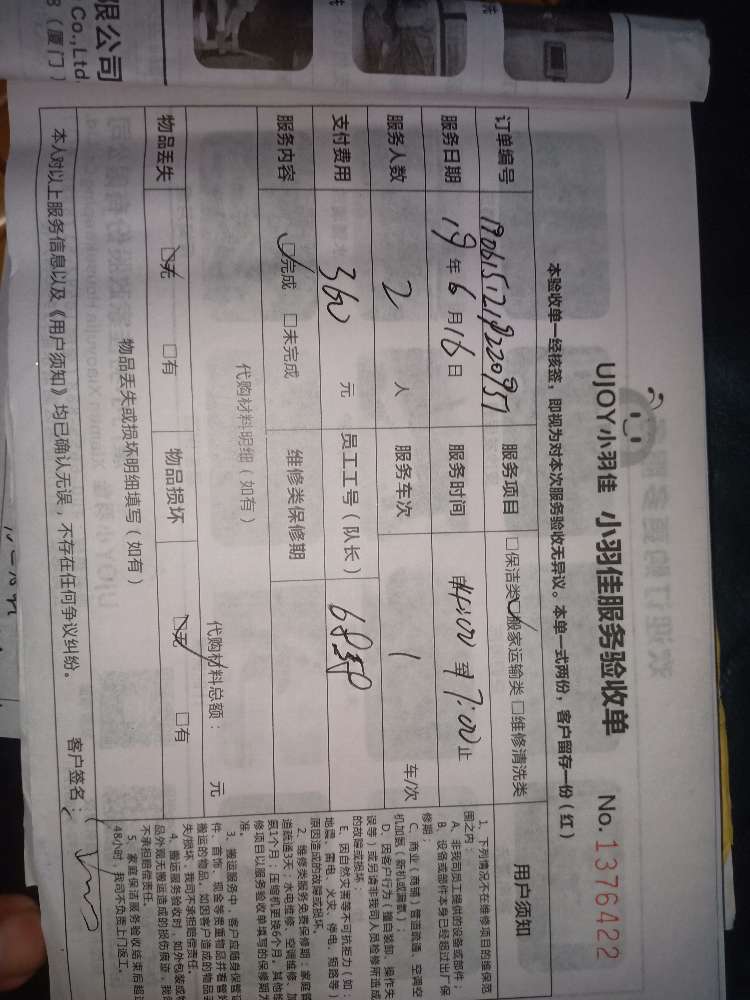 限公司
Co.,Ltd
8（厦门）
UJOY小羽佳 小羽佳服务验收单 No. 1376422
本验收单一经核签，即视为对本次服务验收无异议。本单一式两份，客户留存一份（红）
订单编号 服务项目 □保洁类☑搬家运输类 □维修清洗类
服务日期 19年6月16日 服务时间 至 7:00止
服务人数 2 人 服务车次 1 车/次
支付费用 360 元 员工工号（队长）
服务内容 ☑完成 □未完成 维修类保修期
代购材料明细（如有） 代购材料总额： 元
物品丢失 ☑无 □有 物品损坏 ☑无 □有
物品丢失或损坏明细填写（如有）
本人对以上服务信息以及《用户须知》均已确认无误，不存在任何争议纠纷。 客户签名：
用户须知
1、下列情况不在维修项目的维保范
围之内：
A、非我司员工提供的设备或部件；
B、设备或部件本身已经超过出厂保
修期；
C、商业（商铺）管道疏通、空调空
机加氟（新机或漏氟）；
D、因客户行为（擅自装卸、操作失
误等）或另请非我司人员检修所造成
的故障或损坏；
E、因自然灾害等不可抗拒力（如：
地震、雷电、火灾、停电、短路等）
原因造成的故障或损坏。
2、维修类服务免费保修期：家庭管
道疏通3天，水电维修、空调维修、加
氨1个月；压缩机更换6个月，其他维
修项目以服务验收单填写的保修期为
准。
3、搬运服务中，客户应随身保管证
件、首饰、现金等贵重物品并看管好
搬运的物品，如因客户造成的物品丢
失/损坏，我司不承担赔偿责任。
4、搬运服务验收时，如外包装或物
品外观无搬运造成的损伤痕迹，我司
不承担赔偿责任。
5、家庭保洁服务验收结束后超过
48小时，我司不负责上门返工。